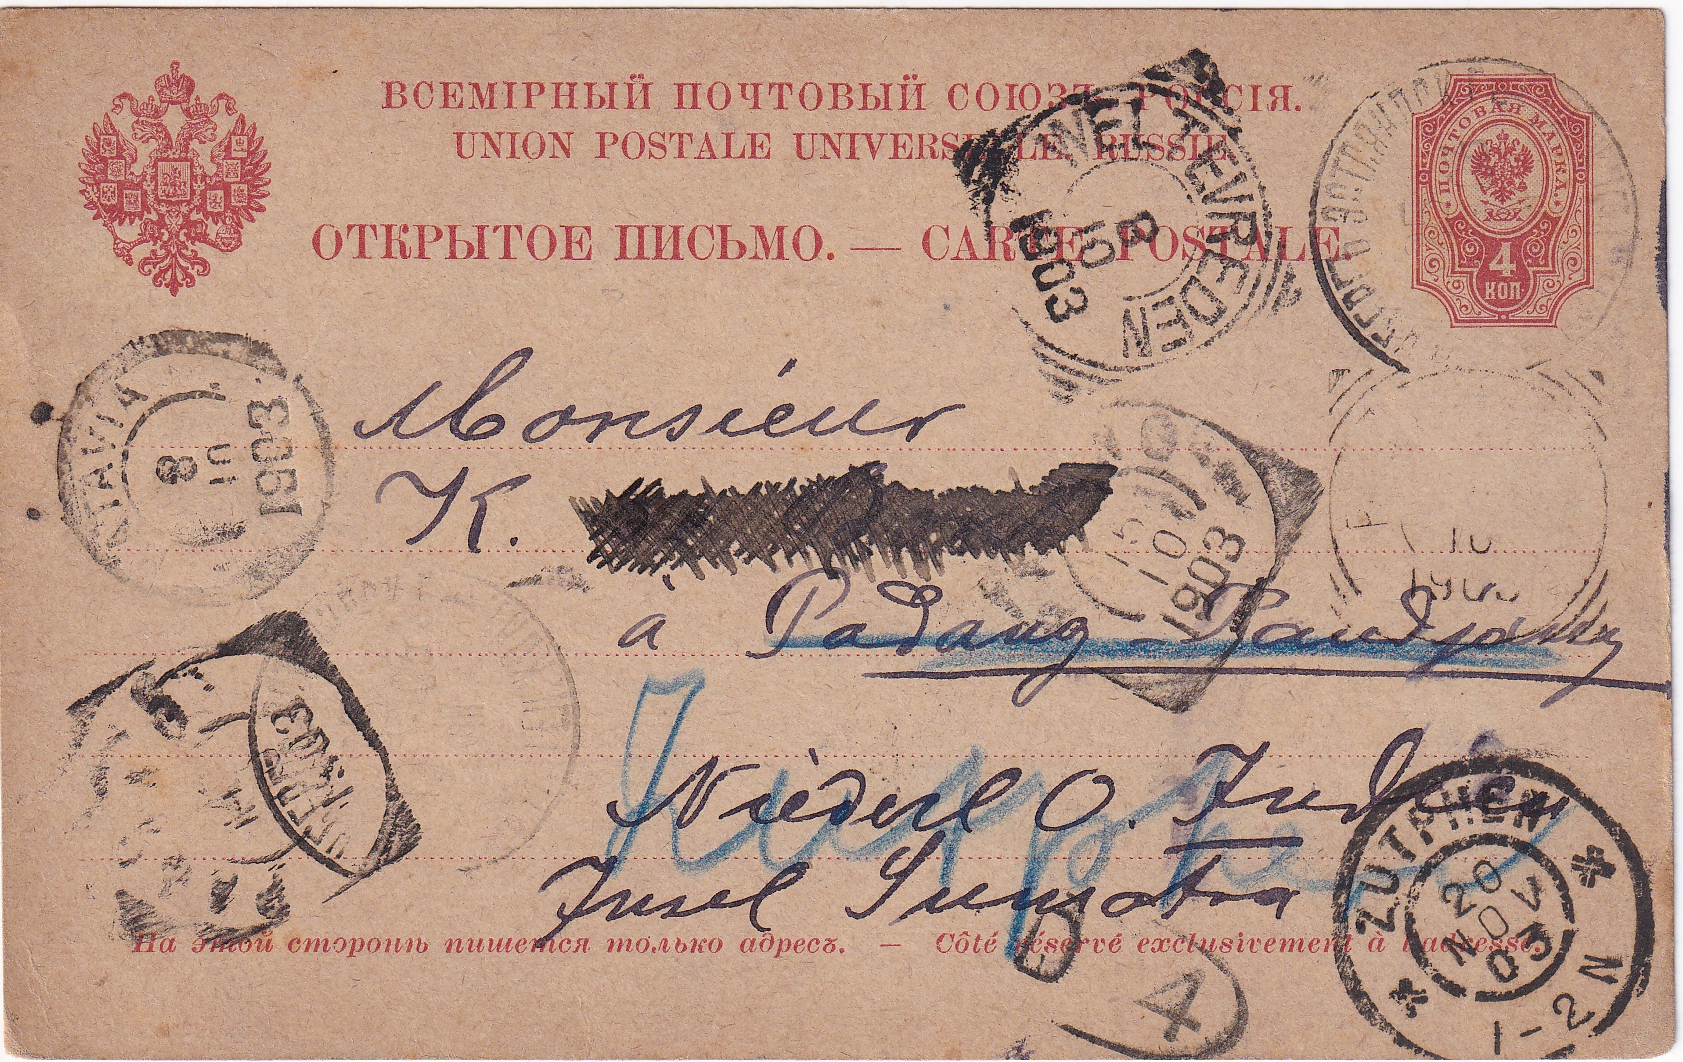 ВСЕМІРНЫЙ ПОЧТОВЫЙ СОЮЗЪ. РОССІЯ.
UNION POSTALE UNIVERSELLE. RUSSIE.
ОТКРЫТОЕ ПИСЬМО. — CARTE POSTALE.
ПОЧТОВАЯ МАРКА
4
КОП
WELTEVREDEN
5
1903
TAVIA
8
10
1903
Monsieur
K.
15
10
1903
10
à Padang Pandjang
Niederl O. Indien
Insel Sumatra
На этой сторонѣ пишется только адресъ. — Côté réservé exclusivement à l'adresse.
ZUTPHEN
20
NOV
03
1-2N
4